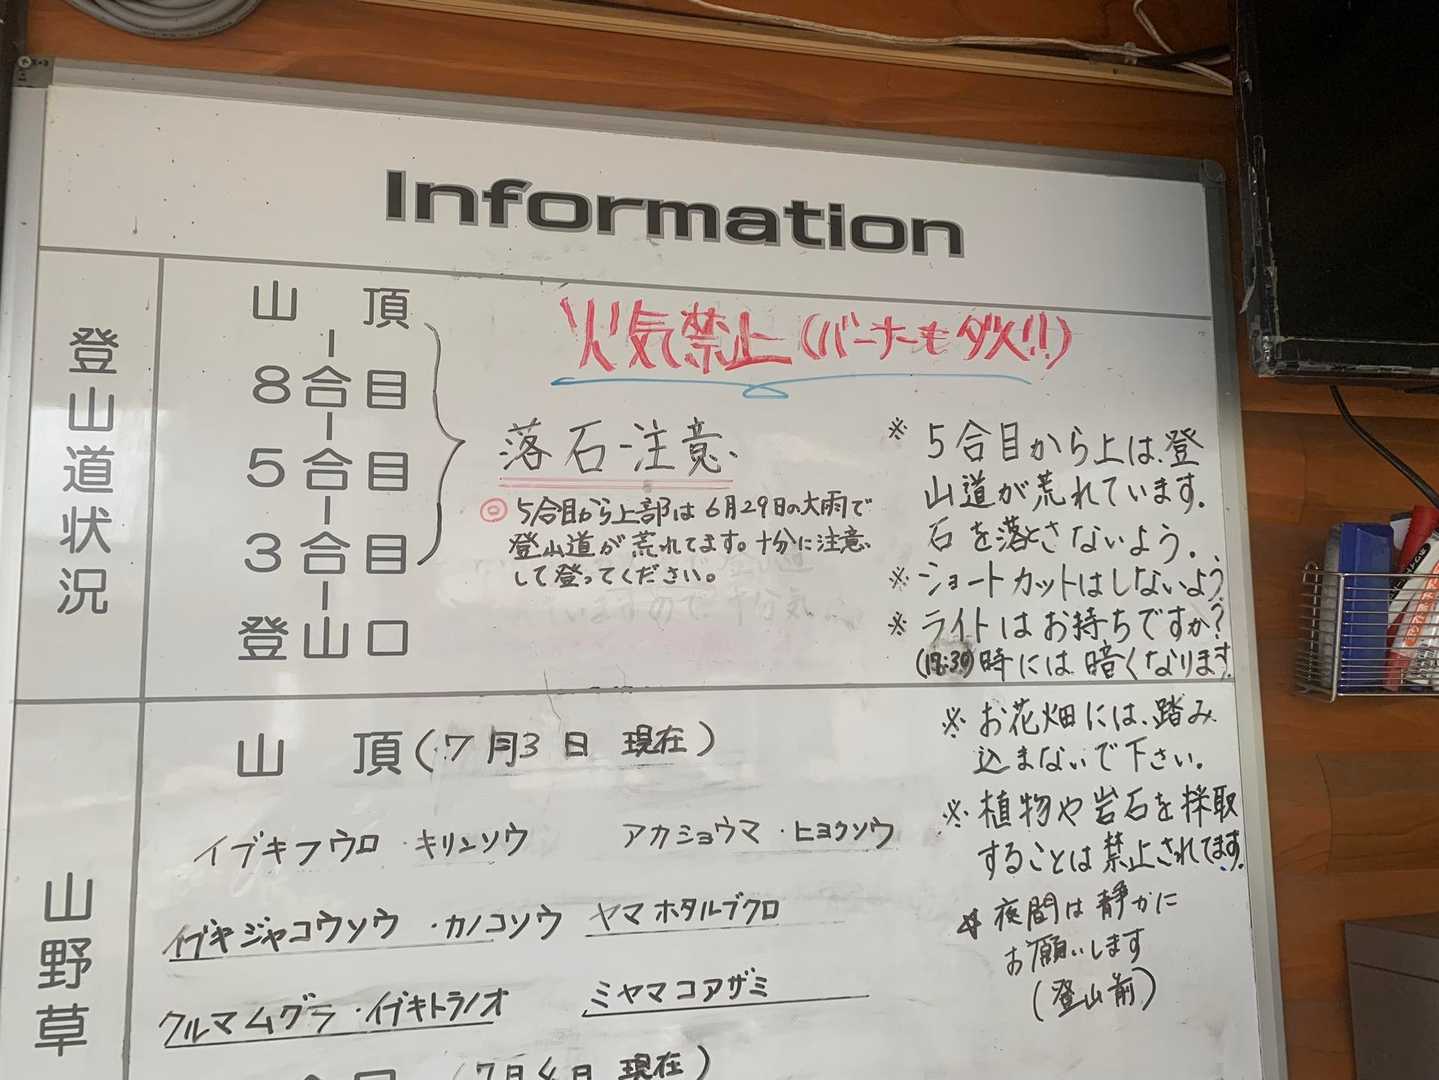 Information
登山道状況
山頂
8合目
5合目
3合目
登山口
火気禁止(バーナーもダメ!!)
落石注意
◎5合目から上部は6月29日の大雨で
登山道が荒れてます。十分に注意
して登ってください。
※5合目から上は、登
山道が荒れています。
石を落とさないよう。
※ショートカットはしないよう
※ライトはお持ちですか?
(18:30)時には暗くなります
山野草
山頂(7月3日 現在)
イブキフウロ・キリンソウ アカショウマ・ヒヨクソウ
イブキジャコウソウ・カノコソウ ヤマホタルブクロ
クルマムグラ・イブキトラノオ ミヤマコアザミ
※お花畑には、踏み
込まないで下さい。
※植物や岩石を採取
することは禁止されてます。
※夜間は静かに
お願いします
(登山前)
(7月4日 現在)